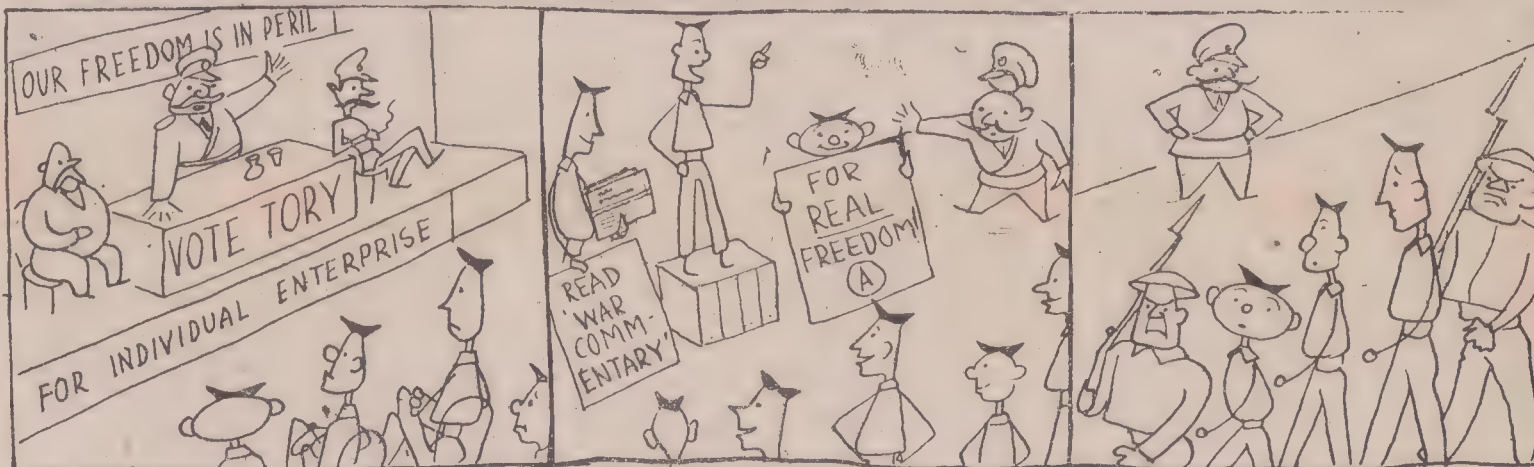 OUR FREEDOM IS IN PERIL!
VOTE TORY
FOR INDIVIDUAL ENTERPRISE
READ
'WAR
COMM-
ENTARY'
FOR
REAL
FREEDOM!
A